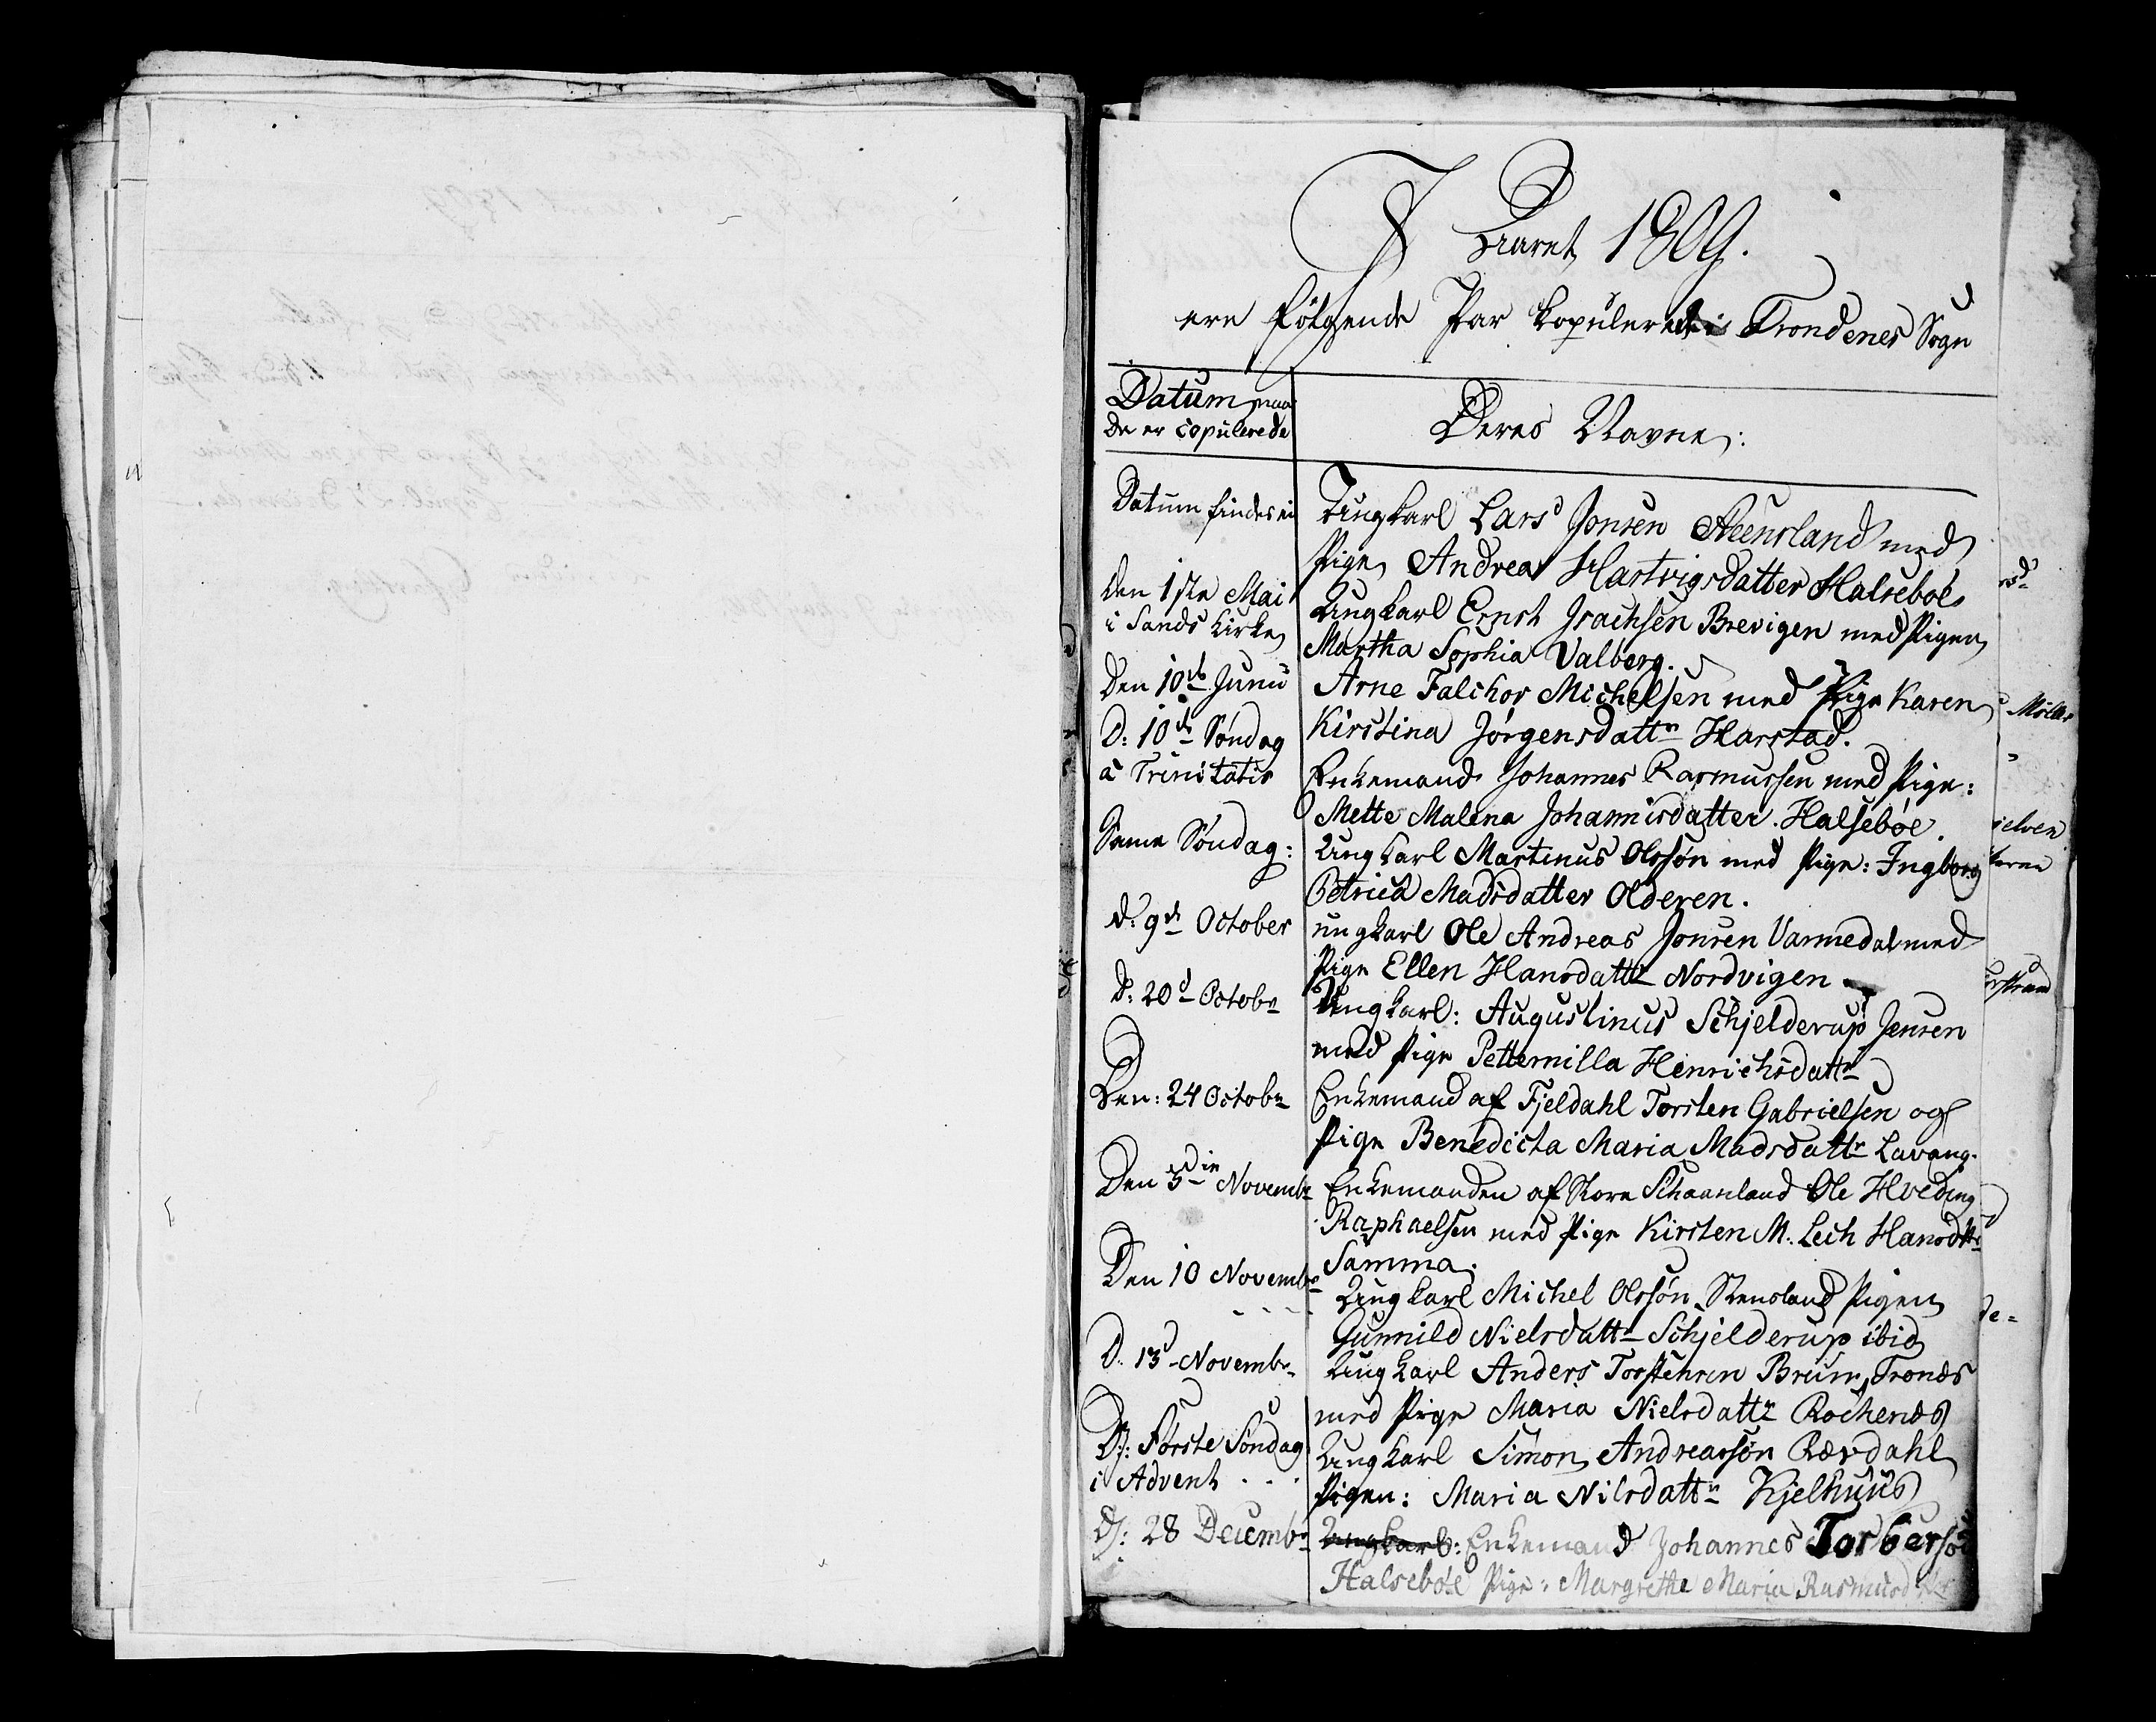 I Aaret 1809.
ere følgende Par kopulerede i Trondenes Sogn
Datum naar
de er copulerede
Deres Navne:
Datum findes ei
Ungkarl Lars Jonsen Steensland med
Pigen Andrea Hartvigsdatter Halseboe
Den 1ste Mai
i Sands Kirke
Ungkarl Ernst Isachsen Brevigen med Pigen
Martha Sophia Valberg.
Den 10de Junii
Arne Falchor Michelsen med Pige Karen
D: 10de Søndag
a Trinitatis
Kirstina Jørgensdattr Harstad.
Enkemand Johannes Rasmussen med Pige:
Mette Malena Johannisdatter. Halsebøe.
Same Søndag:
Ungkarl Martinus Olssøn med Pige: Ingborg
Petrica Madsdatter Olderen.
d: 9de October
ungkarl Ole Andreas Jonsen Varmedal med
Pige Ellen Hansdattr Nordvigen
D: 20d Octobr
Ungkarl: Augustinus Schjelderup Jensen
med Pige Petternilla Henrichsdattr
Den: 24 Octobr
Enkemand af Fjeldahl Torsten Gabrielsen og
Pige Benedicta Maria Madsdattr Lavang.
Den 3die Novembr
Enkemanden af Store Schaanland Ole Hveding
Raphaelsen med Pige Kirsten M. Lech Hansdttr
Samma.
Den 10 Novembr
Ungkarl Michel Olssøn Stensland Pigen
Gunnild Nielsdattr Schjelderup ibid
D. 13d Novembr
Ungkarl Anders Torstensen Brun, Tronds
med Pige Maria Nielsdattr Rochenes
D: Første Søndag
i Advent . . .
Ungkarl Simon Andreassøn Rævdahl
Pigen: Maria Nilsdattr Kjelhuus
D: 28 Decembr
Ungkarl: Enkemand Johannes Torbersøn
Halsebøe Pige: Margrethe Maria Rasmusd